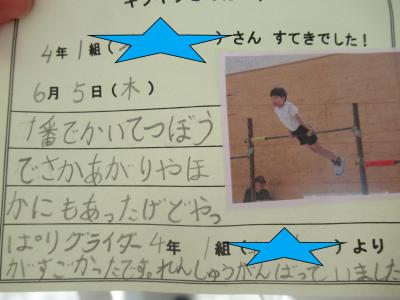 4年 1組( )さん すてきでした!
6月 5日(木)
1番でかいてつぼう
でさかあがりやほ
かにもあったけどやっ
ぱりグライダー
がすごかったです。れんしゅうがんばっていました
4年 1組( )より